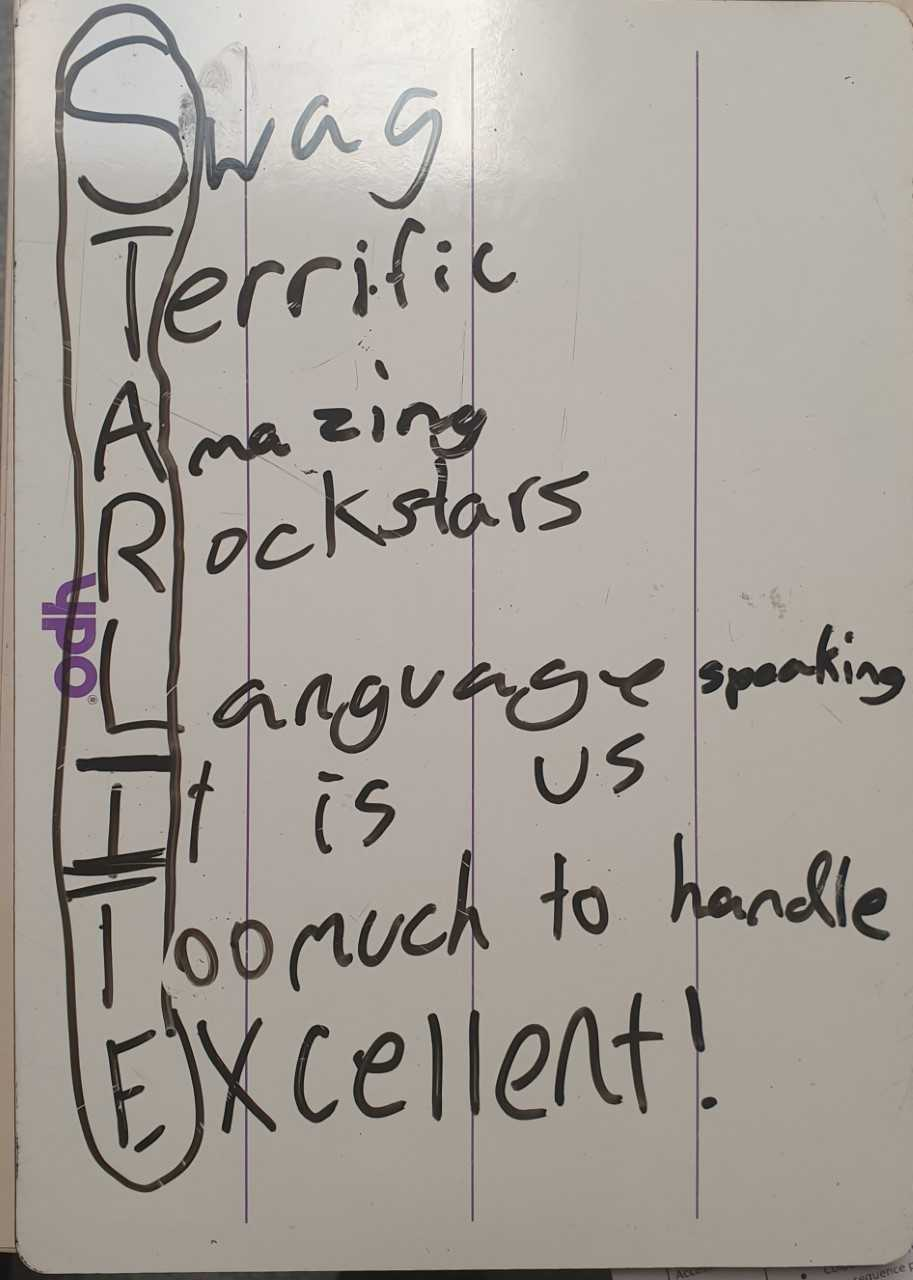 Swag
Terrific
Amazing
Rockstars
Language speaking
It is us
Too much to handle
Excellent!
ypo